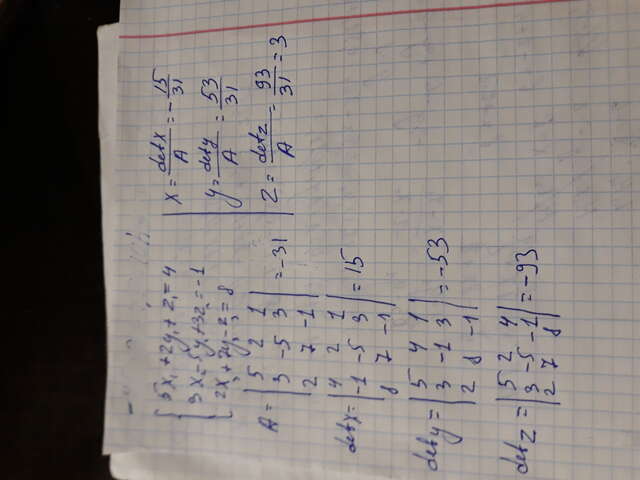 5x₁+2y₁+z₁=4
3x₂-5y₂+3z₂=-1
2x₃+7y₃-z₃=8
A=|5 2 1|
|3 -5 3|=-31
|2 7 -1|
detx=|4 2 1|
|-1 -5 3|=15
|8 7 -1|
dety=|5 4 1|
|3 -1 3|=-53
|2 8 -1|
detz=|5 2 4|
|3 -5 -1|=-93
|2 7 8|
x=detx/A=-15/31
y=dety/A=53/31
z=detz/A=93/31=3